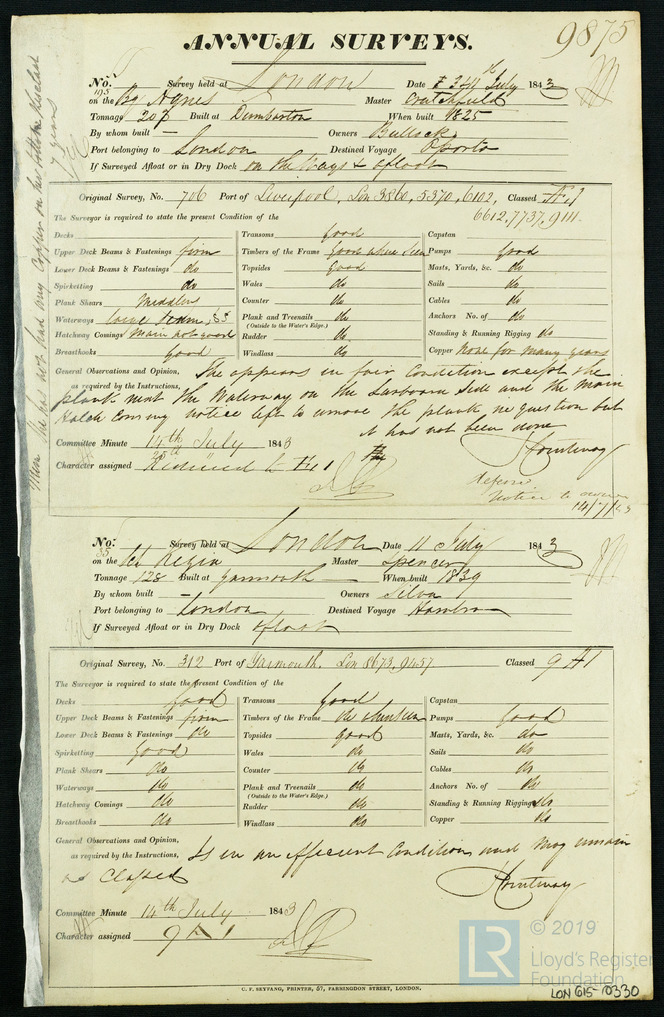 9875
ANNUAL SURVEYS.
No. 195 Survey held at London Date 3 & 4th July 1843
on the Bg Agnes Master Crutchfield
Tonnage 207 Built at Dumbarton When built 1825
By whom built — Owners Bullock
Port belonging to London Destined Voyage Oporto
If Surveyed Afloat or in Dry Dock on the Ways & afloat
Original Survey, No. 706 Port of Liverpool, Lon 3860, 5370, 6102, Classed Æ 1
6612, 7737, 9111.
The Surveyor is required to state the present Condition of the
Decks Transoms good Capstan
Upper Deck Beams & Fastenings firm Timbers of the Frame Good where seen Pumps good
Lower Deck Beams & Fastenings do Topsides good Masts, Yards, &c. do
Spirketting do Wales do Sails do
Plank Shears Counter do Cables do
Waterways Plank and Treenails do Anchors No. of do
(Outside to the Water's Edge.)
Hatchway Comings Main not good Rudder do Standing & Running Rigging do
Breasthooks good Windlass do Copper None for many years
General Observations and Opinion, appears in fair Condition except the
as required by the Instructions, plank next the Waterway on the Larboard Side and the main
Hatch Coming notice left to remove the plank in question but
it has not been done
Committee Minute 14th July 1843
25th
Character assigned Reduced to Æ 1
Notice to owner
14/7/43
No. 35 Survey held at London Date 11 July 1843
on the Regia Master Spencer
Tonnage 128 Built at Yarmouth When built 1839
By whom built — Owners Silva
Port belonging to London Destined Voyage
If Surveyed Afloat or in Dry Dock afloat
Original Survey, No. 312 Port of Yarmouth, Lon 8673, 9457 Classed 9 A 1
The Surveyor is required to state the present Condition of the
Decks good Transoms good Capstan
Upper Deck Beams & Fastenings firm Timbers of the Frame do where seen Pumps good
Lower Deck Beams & Fastenings do Topsides good Masts, Yards, &c. do
Spirketting good Wales do Sails do
Plank Shears do Counter do Cables do
Waterways do Plank and Treenails do Anchors No. of do
(Outside to the Water's Edge.)
Hatchway Comings do Rudder do Standing & Running Rigging do
Breasthooks do Windlass do Copper do
General Observations and Opinion,
as required by the Instructions, Is in an efficient Condition and may remain
as Classed
Committee Minute 14th July 1843
Character assigned 9 A 1
C. F. SEYFANG, PRINTER, 57, FARRINGDON STREET, LONDON.
LR © 2019
Lloyd's Register
Foundation
LON 615-0330